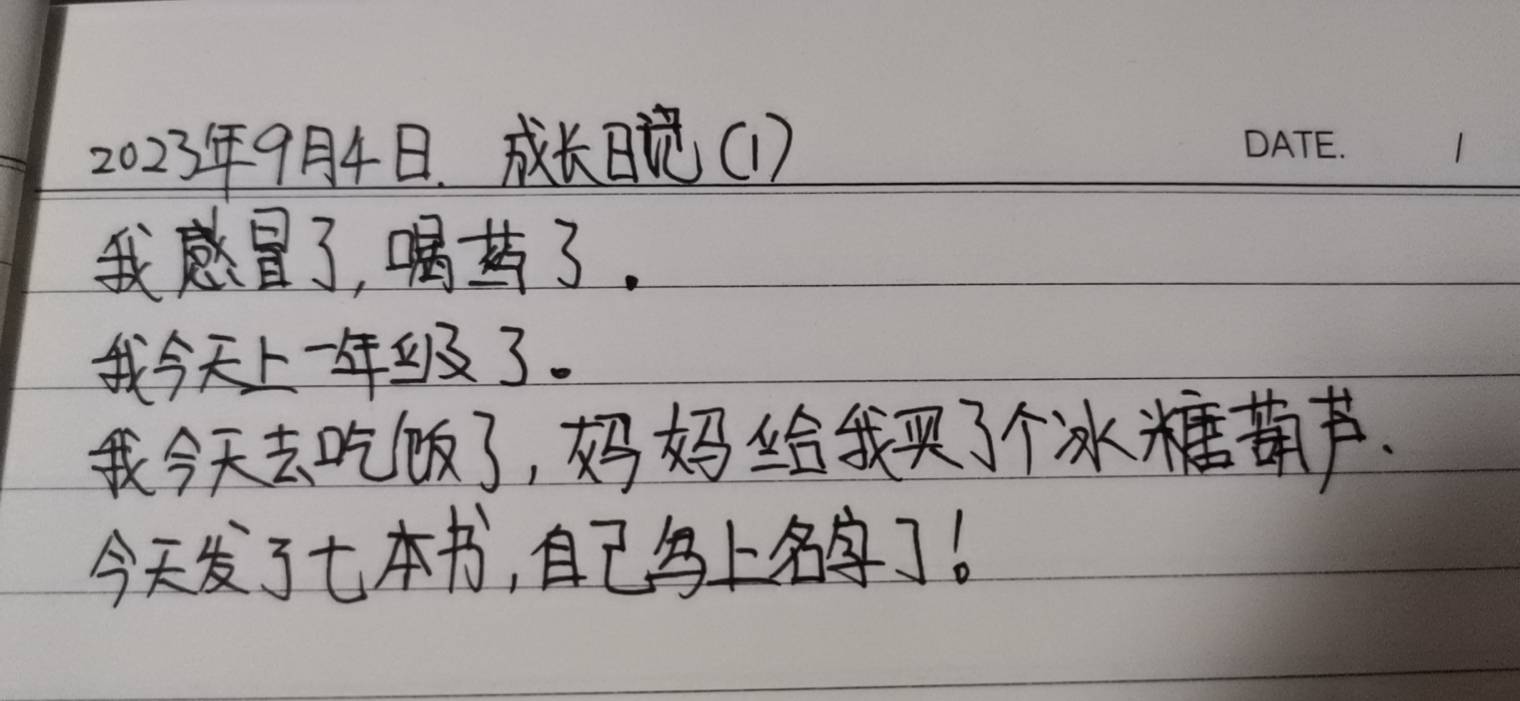 2023年9月4日. 成长日记(1)
DATE. 1
我感冒了,喝药了.
我今天上一年级了。
我今天去吃饭了,妈妈给我买了个冰糖葫芦.
今天发了七本书,自己写上名字了!